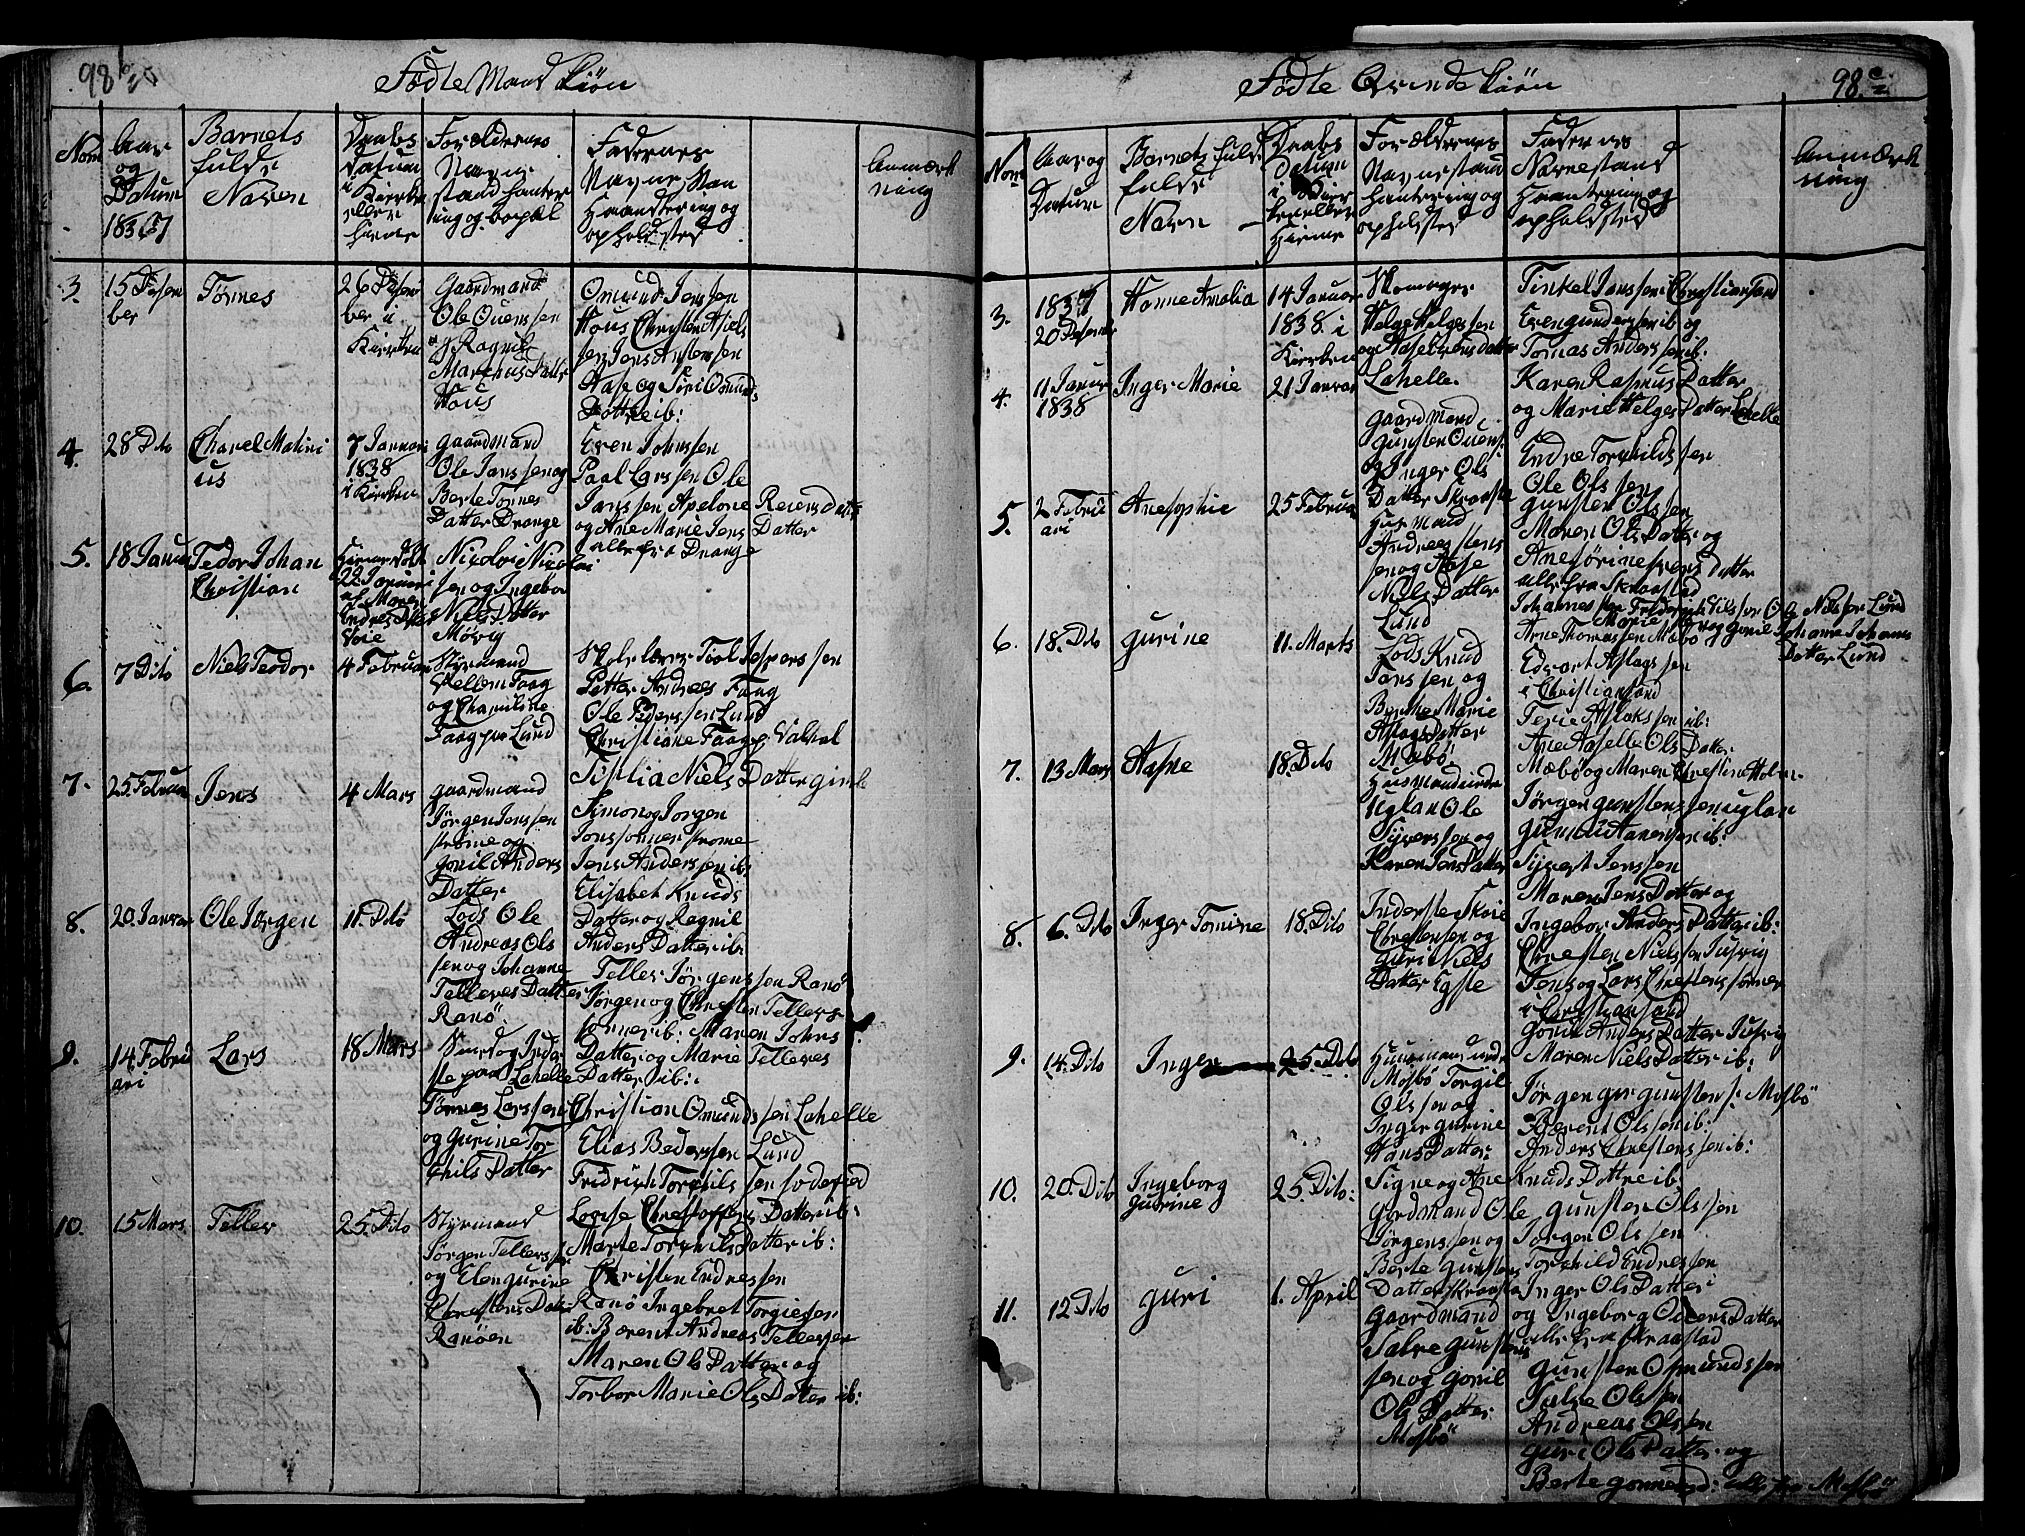 98 b
Fødte Mand kiøn
Nom
Aar
og
Datum
1837
Barnets
fulde
Navn
Daabs
Datum
i Kirken
eller
hieme
Forældernes
Navne
stand hanter
ing og bopæl
Fadernes
Navne Stan
Haandtering og
opholdsted
Anmærk
ning
3.
15 Desem
ber
Tønnes
26 Desem
ber i
Kirken
Gaardmand
Ole Ouenssen
og Ragnil
Marcus Datter
Hous
Omund Jenssen
Hous Chresten Asels
sen Jens Ansten sen
Aase og Siri Omunds
Dottre ib:
4.
28 Dito
Charel Matini
us
7 Januari
1838
i Kirken
gaardmand
Ole Janssen og
Berte Tønnes
Datter Drange
Even Johnssen
Paal Larssen Ole
Janssen Apelone Reiers Datter
og Ane Marie Jens Datter
alle fra Drange
5.
18 Janua
Tedor Johan
Christian
Hieme døbt
22 Januari
af Maren
Endres Datter
Voie
Nicolai Nicolai
sen og Ingebor
Niels Datter
Møvig
6.
7 Dito
Niels Teodor
4 Februar
Styrmand
Vellem Faag
og Charuline
Faag paa Lund
Skolelærer Tiol Jespers sen
Petter Andreas Faag
Ole Pederssen Lund
Christiane Faag p Valsal
Tisilia Niels Datter gimle
7.
25 Februa
Jens
4 Mars
gaardmand
Jørgen Jenssen
strøme og
Gonil Anders
Datter
Simon og Jørgen
Jens sønner strøme
Jens Anderssen ib:
Elisabet Knuds
Datter og Ragnil
Anders Datter ib:
8.
20 Januar
Ole Jørgen
11. Dito
Lods Ole
Andreas Ols
sen og Johanne
Telleves Datter
Ranø.
Tellev Jørgenssen Ranø
Jørgen og Chresten Tellevs
sønner ib: Maren Johns
Datter og Marie Telleves
Datter ib:
9.
14 Febru
ari
Lars
18 Mars
Smed og Inder
ste paa Lahelle
Tønnes Larssen
og Gurine Tor
chils Datter
Christian Omunds sen Lahelle
Elias Pederssen Lund
Fridrich Torchils sen søderød
Lovise Chrestoffers Datter ib:
Marte Torchils Datter ib:
10.
15 Mars
Tellev
25 Dito
Styrmand
Jørgen Tellevssen
og Elen gurine
Chrestens Datter
Ranøen
Christen Endressen
Ranø Ingebret Torgiessen
ib: Bærent Andreas Tellefsen
Maren Ols Datter og
Torbor Marie Ols Datter ib:
98 c
Fødte Qvinde kiøn
Nom
Aar og
Datum
Barnets fulde
fulde
Navn
Daabs
Datum
i Kier
ken eller
Hieme
Forældernes
Navne stand
Hantering og
opholdsted
Faderens
Navne stand
Haantering og
opholdsted
Anmærk
ning
3.
1837
20 Desember
Hanne Amalia
14 Januar
1838 i
Kirken
Skomager
Helge Helgessen
og Aasel Evens datter
Lahelle
Tinkel Janssen i Christiansand
Even gunderssen ib og
Tomas Anderssen ib:
Karen Rasmus Datter
og Marie Helges Datter Lahelle
4.
11 Januar
1838
Inger Marie
21 Januar
gaardmand
gunsten Ouens
og Inger Ols
Datter Kraaste
Endre Torchilds sen
Ole Ols sen
gunsten Olssen
Maren Ols Datter og
Ane sørine svens datter
alle fra Kraastad
5.
2 Febru
ari
Anesophie
25 Februar
Husmand
Andreas Jens
sen og Aase
Niels Datter
Lund
Johannes sen Frederich Nilssen Ole Nilssen Lund
6.
18. Dito
gurine
11. Marts
Lods Knud
Janssen og
Byrthe Marie
Aslags Datter
Mæbø.
Arne Thomassen Mæbø
Edvart Aslags sen
i Christiansand
Terie Aslaks sen ib:
Ane Aaselle Ols Datter
Mæbø og Maren Chrestine Holm
Johanne Johanns
Datter Lund
7.
13 Mars
Aasne
18. Dito
Husmand under
Uglan Ole
Syverssen og
Karen Jens Datter
Jørgen gunstenssen uglan
Gunuld Aanenssen ib:
Syvert Jenssen
Maren Jens Datter og
Ingebor Anders Datter ib:
8.
6. Dito
Inger Tomine
18. Dito
Inderste Skoie
Chrestensen og
Guri Niels
Datter Egste
Chresten Nielssen Jusvig
Jens og Lars Chrestens sønner
i Christiansand
Gonil Anders Datter Jusvig
Maren Niels Datter ib:
9.
14. Dito
Inger
25. Dito
Husmand under
Mosbø Torgil
Olssen og
Inger gurine
Hans Datter
Jørgen gunstens: Mosbø
Bærent Olssen ib:
Anders Chrestenssen ib:
Signe og Ane Knuds Dottre ib:
10.
20. Dito
Ingeborg
gurine
25. Dito:
Gordmand Ole
Jørgenssen og
Berte gunstens
Datter Kraaste
gunsten Olssen
Jørgen Olssen
Torchild Endressen
Inger Ols Datter
og Ingeborg Ouens Datter
alle fra Kraastad
11.
12 Dito
guri
1. April
Gaardmand
Salve gunstens
sen og gonil
Ols Datter
Mosbø
gunsten Osmundssen
Salve Olssen
Andreas Olssen
guri Ols Datter og
Berte gonnersd: alle fra Mosbø